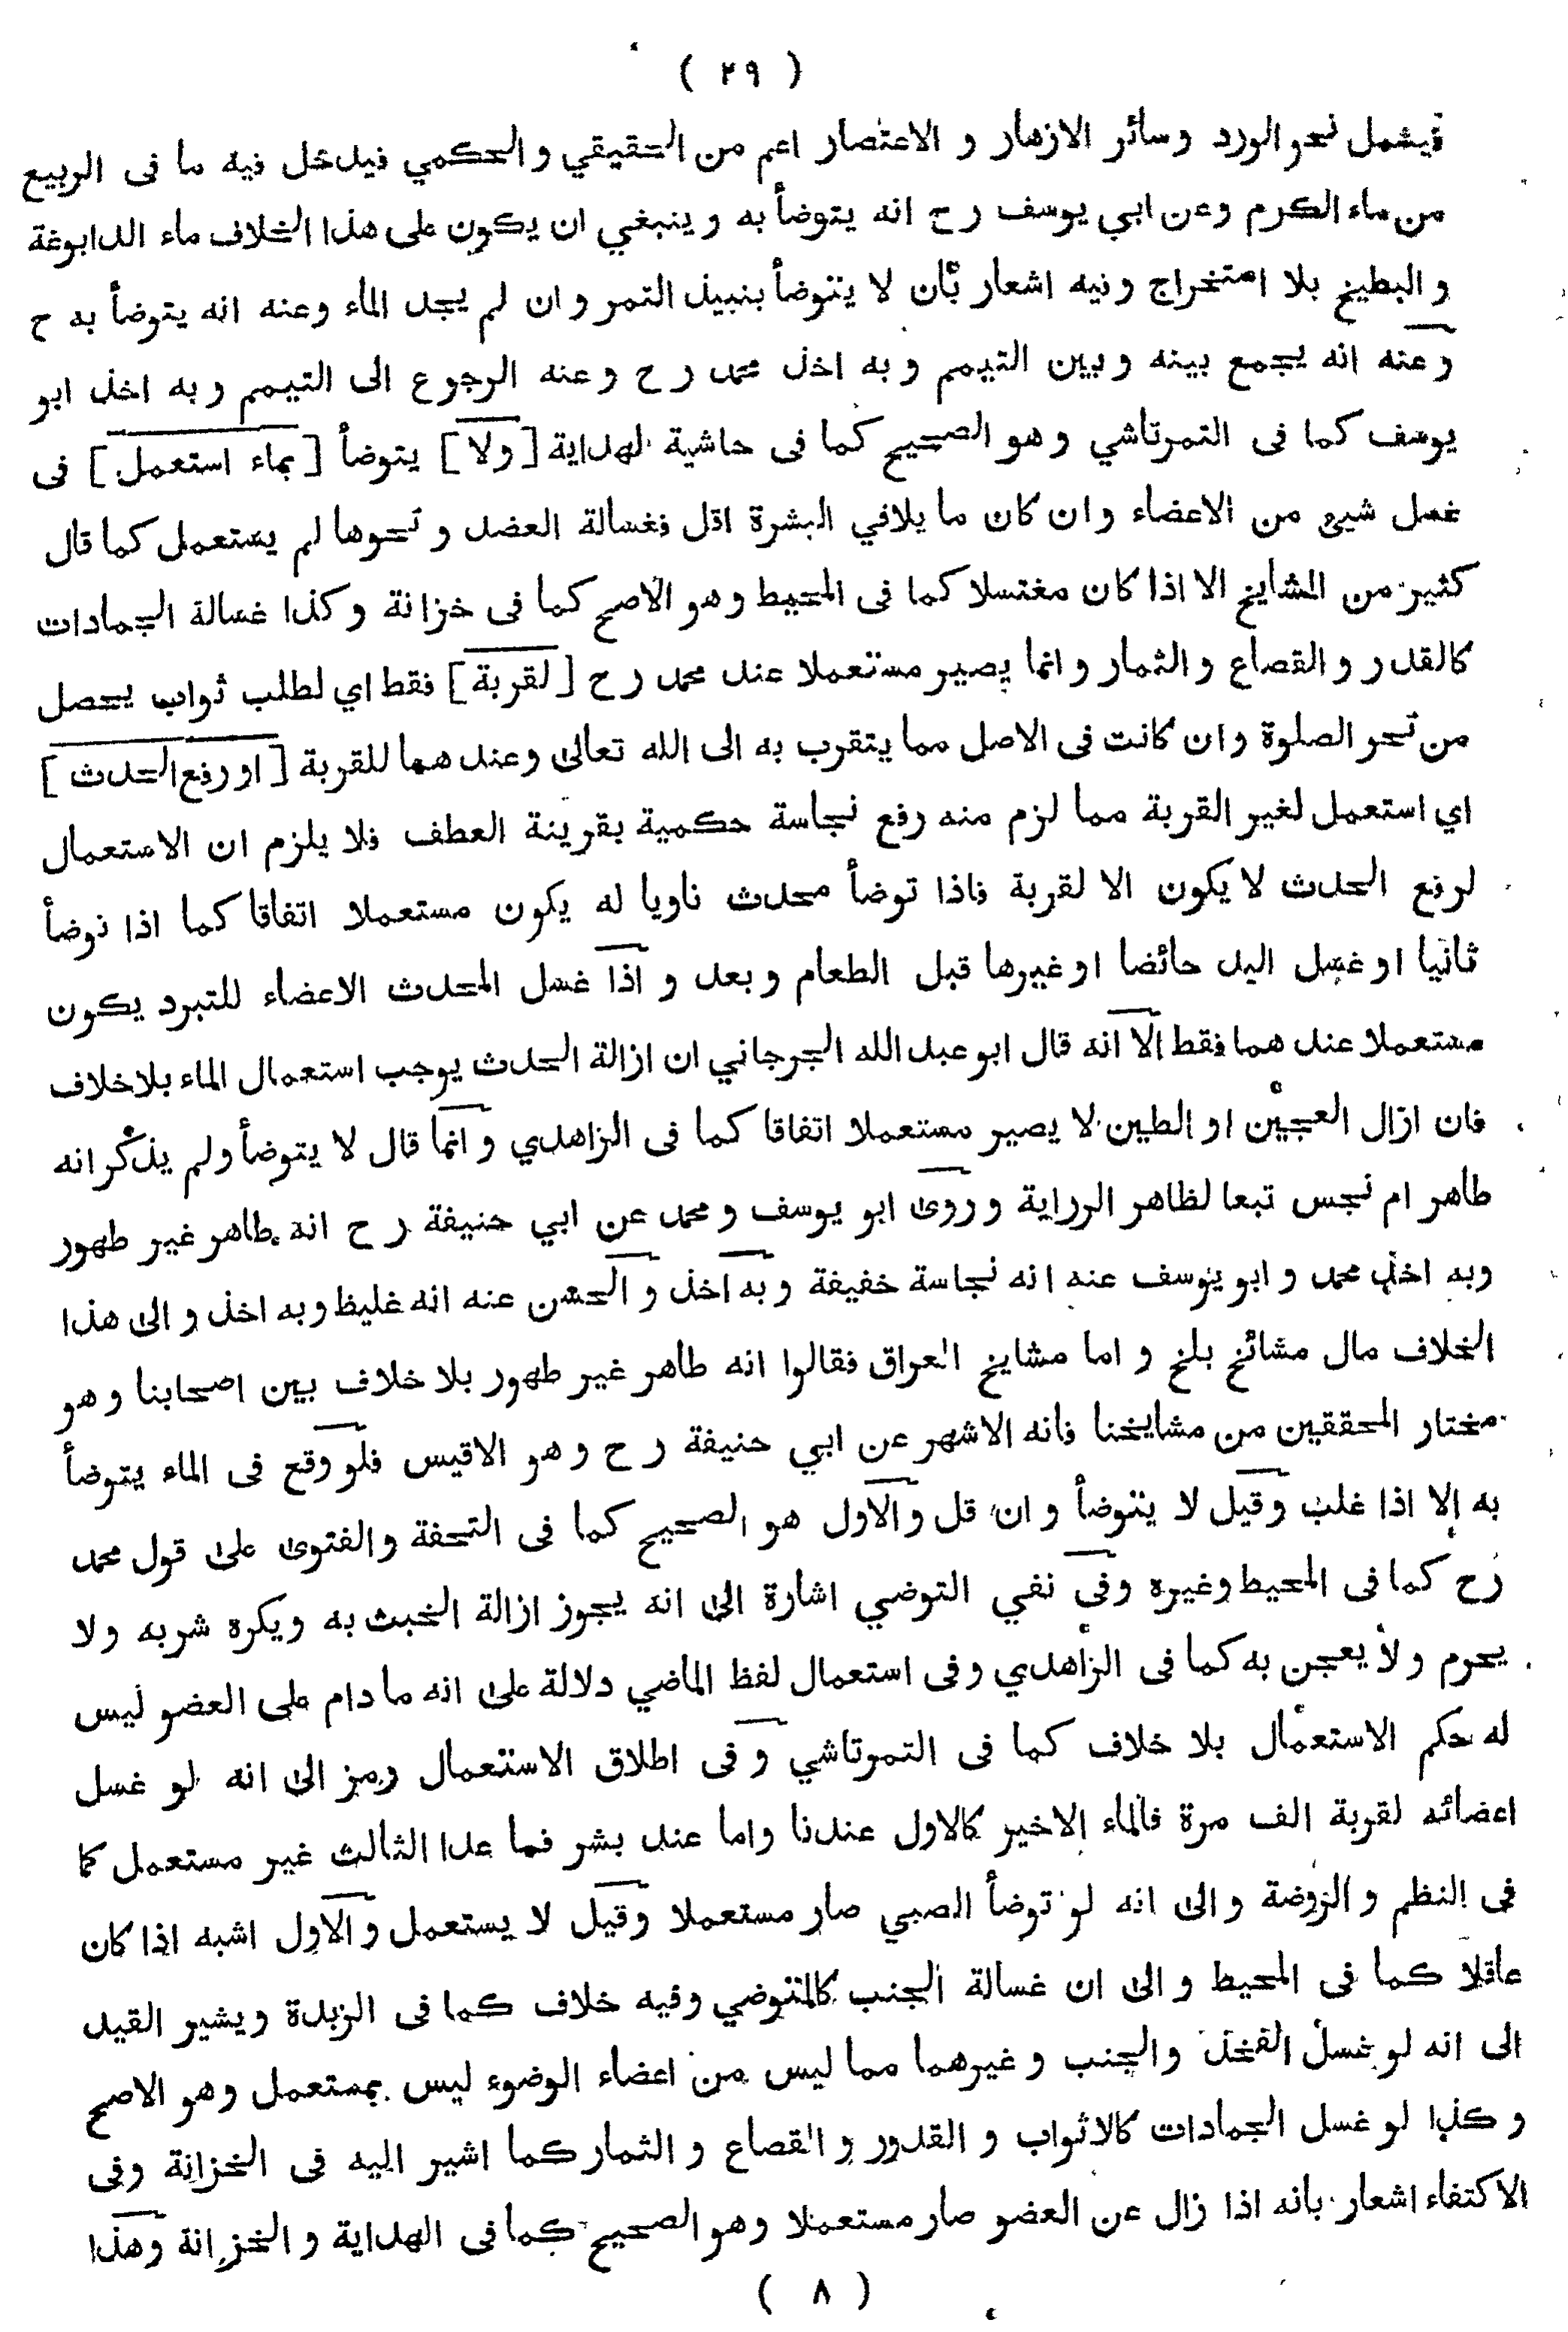 ( ٢٩ )
فيشمل نحو الورد و سائر الازهار و الاعتصار اعم من الحقيقي و الحكمي فيدخل فيه ما فى الربيع
من ماء الكرم وعن ابي يوسف رح انه يتوضأ به و ينبغي ان يكون على هذا الخلاف ماء الدابوغة
و البطيخ بلا استخراج وفيه اشعار بأن لا يتوضأ بنبيذ التمر و ان لم يجد الماء وعنه انه يتوضأ به ح
و عنه انه يجمع بينه و بين التيمم و به اخذ محمد رح و عنه الرجوع الى التيمم و به اخذ ابو
يوسف كما فى التمرتاشي و هو الصحيح كما فى حاشية الهداية [ ولا ] يتوضأ [ بماء استعمل ] فى
غسل شيئ من الاعضاء و ان كان ما يلاقي البشرة اقل فغسالة العضد و نحوها لم يستعمل كما قال
كثير من المشايخ الا اذا كان مغتسلا كما فى المحيط و هو الاصح كما فى خزانة و كذا غسالة الجمادات
كالقدر و القصاع و الثمار و انما يصير مستعملا عند محمد رح [ لقربة ] فقط اي لطلب ثواب يحصل
من نحو الصلوة و ان كانت فى الاصل مما يتقرب به الى الله تعالى وعند هما للقربة [ او رفع الحدث ]
اي استعمل لغير القربة مما لزم منه رفع نجاسة حكمية بقرينة العطف فلا يلزم ان الاستعمال
لرفع الحدث لا يكون الا لقربة فاذا توضأ محدث ناويا له يكون مستعملا اتفاقا كما اذا توضأ
ثانيا او غسل اليد حائضا او غيرها قبل الطعام و بعد و اذا غسل المحدث الاعضاء للتبرد يكون
مستعملا عند هما فقط الا انه قال ابو عبد الله الجرجاني ان ازالة الحدث يوجب استعمال الماء بلا خلاف
فان ازال العجين او الطين لا يصير مستعملا اتفاقا كما فى الزاهدي و انما قال لا يتوضأ ولم يذكر انه
طاهر ام نجس تبعا لظاهر الرراية و روى ابو يوسف و محمد عن ابي حنيفة رح انه طاهر غير طهور
وبه اخذ محمد و ابو يوسف عنه انه نجاسة خفيفة و به اخذ و الحسن عنه انه غليظ و به اخذ و الى هذا
الخلاف مال مشائخ بلخ و اما مشايخ العراق فقالوا انه طاهر غير طهور بلا خلاف بين اصحابنا و هو
مختار المحققين من مشايخنا فانه الاشهر عن ابي حنيفة رح و هو الاقيس فلو وقع فى الماء يتوضأ
به إلا اذا غلب وقيل لا يتوضأ و ان قل و الاول هو الصحيح كما فى التحفة و الفتوى على قول محمد
رح كما فى المحيط وغيره وفى نفي التوضي اشارة الى انه يجوز ازالة الخبث به و يكره شربه ولا
يحرم و لا يعجن به كما فى الزاهدي و فى استعمال لفظ الماضي دلالة على انه ما دام على العضو ليس
له حكم الاستعمال بلا خلاف كما فى التمرتاشي و فى اطلاق الاستعمال رمز الى انه لو غسل
اعضائه لقربة الف مرة فالماء الاخير كالاول عندنا واما عند بشر فما عدا الثالث غير مستعمل كما
فى النظم و الروضة و الى انه لو توضأ الصبي صار مستعملا وقيل لا يستعمل و الاول اشبه اذا كان
عاقلا كما فى المحيط و الى ان غسالة الجنب كالمتوضي وفيه خلاف كما فى الزبدة و يشير القيد
الى انه لو غسل الفخذ و الجنب و غيرهما مما ليس من اعضاء الوضوء ليس بمستعمل و هو الاصح
و كذا لو غسل الجمادات كالاثواب و القدور و القصاع و الثمار كما اشير اليه فى الخزانة وفى
الاكتفاء اشعار بانه اذا زال عن العضو صار مستعملا وهو الصحيح كما فى الهداية و الخزانة وهذا
( ٨ )